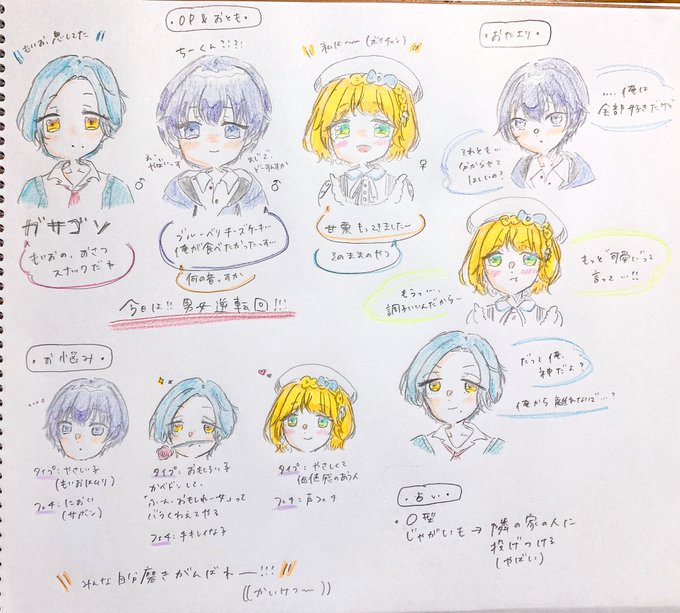 もいお、息してた
・OP&おとも・
ちーくん?!?!
私は〜〜(ガリチュン)
・おたより・
♂
え、やばいっす
♂
♀
ガサゴソ
もいおの、おさつ
スナックだよ
ブルーベリーチーズケーキ…
俺が食べたかったっす…
何の音っすか
甘栗 もってきました〜
3の主のやつ
今日は!! 男女逆転回!!!
…、俺は
全部好きだけど
それとも…
分からせて
ほしいの?
もっと"可愛い"って
言って…!!
もうっ…、
調子いいんだから…
だって俺、
神だよ?
俺から離れないで…?
・お悩み・
タイプ:やさしい子
(もいおはムリ)
フェチ:におい
(サボン)
タイプ:おもしろい子
かべドンして、
「ふーん、おもしれーサ」って
バラくわえてやる
フェチ:手キレイな子
タイプ:やさしくて
価値観のあう人
フェチ:声フェチ
・占い・
・O型
じゃがいも→隣の家の人に
投げつける
(やばい)
みんな自分磨きがんばれー!!!
((かいけつ〜))